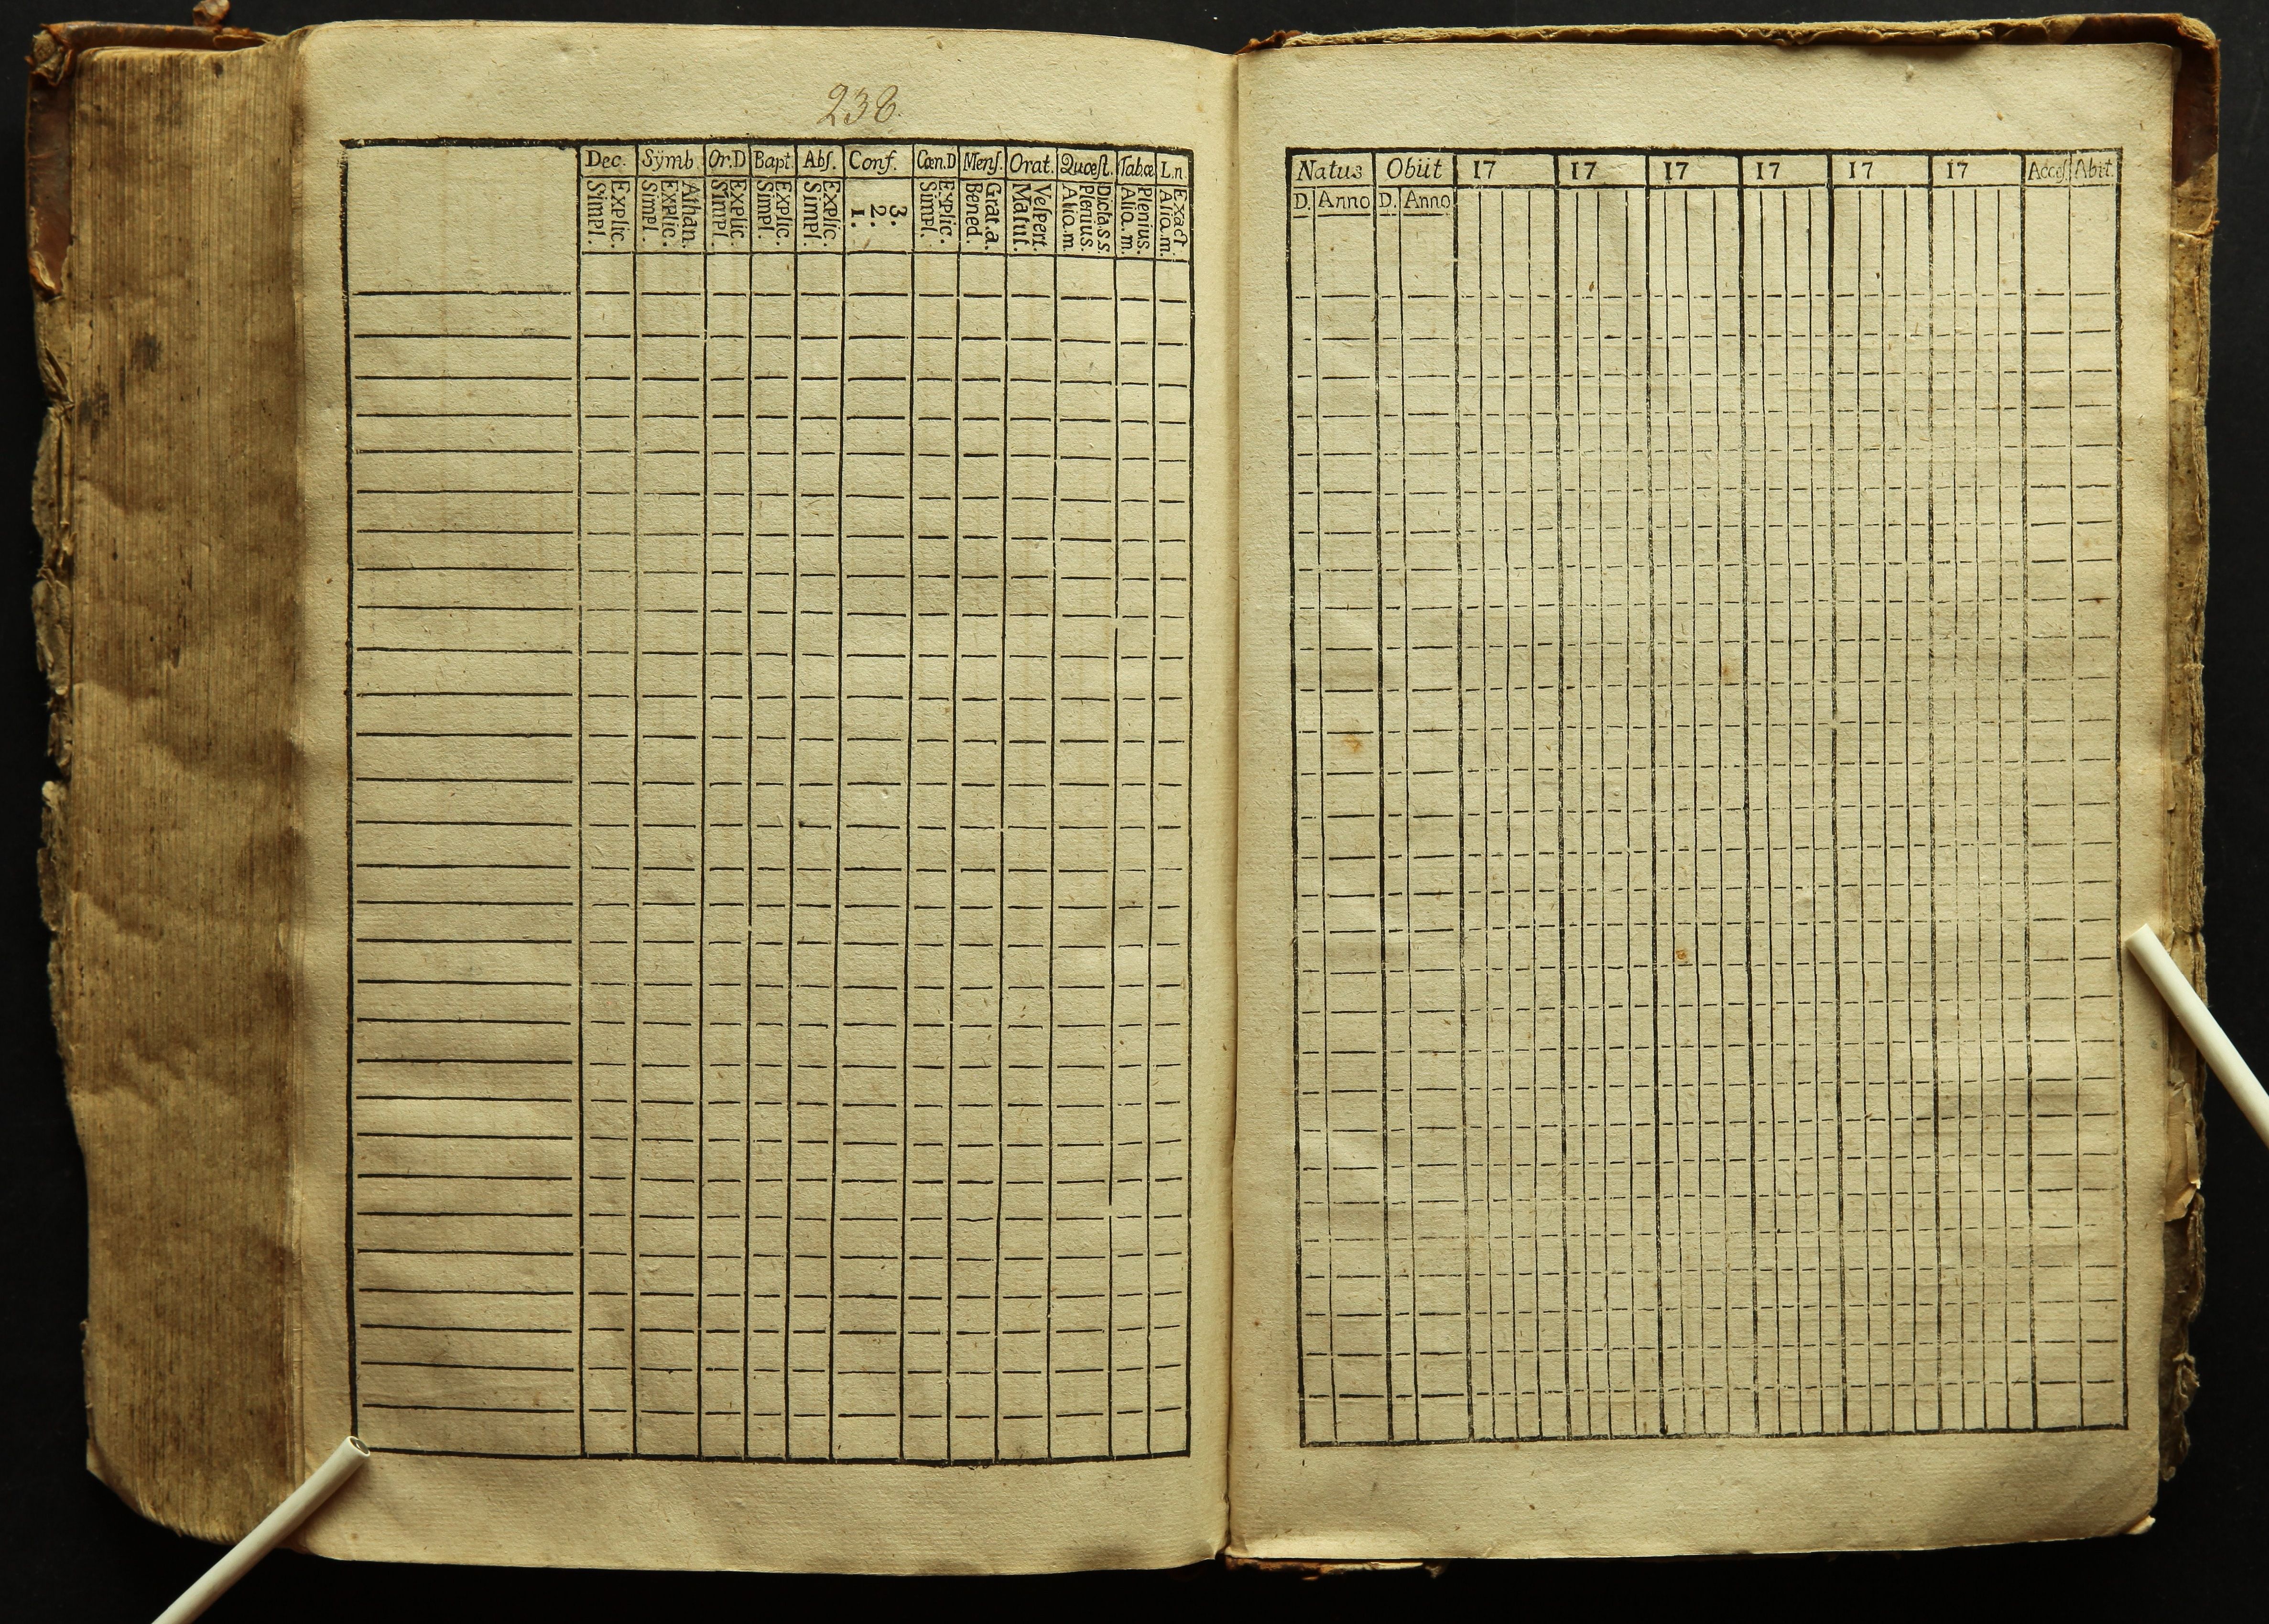 238.
Dec. Sÿmb. Or.D Bapt. Abſ. Conf. Cœn.D Menſ. Orat. Quœſt. Tab.œ L.n.
Explic. Simpl.
Athan. Explic. Simpl.
Explic. Simpl.
Explic. Simpl.
Explic. Simpl.
3. 2. 1.
Explic. Simpl.
Grat.a. Bened.
Veſpert. Matut.
Dicta.s.s. Plenius. Alio.m.
Plenius. Alio.m.
Exact. Alio.m.
Natus Obiit 17 17 17 17 17 17 Acceſ. Abit.
D. Anno D. Anno